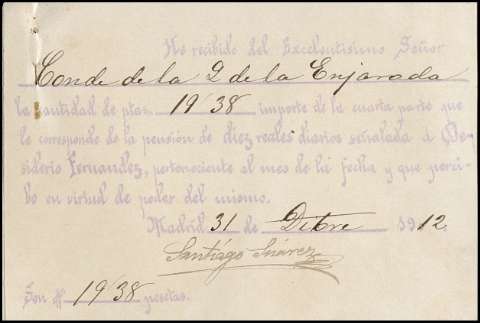 He recibido del Excelentisimo Señor
Conde de la Q de la Enjarada
la cantidad de ptas. 19'38 importe de la cuarta parte que
le corresponde de la pensión de diez reales diarios señalada á De-
siderio Fernandez, perteneciente al mes de la fecha y que perci-
bo en virtud de poder del mismo.
Madrid 31 de Dibre 1912.
Santiago Suárez
Son # 19'38 pesetas.